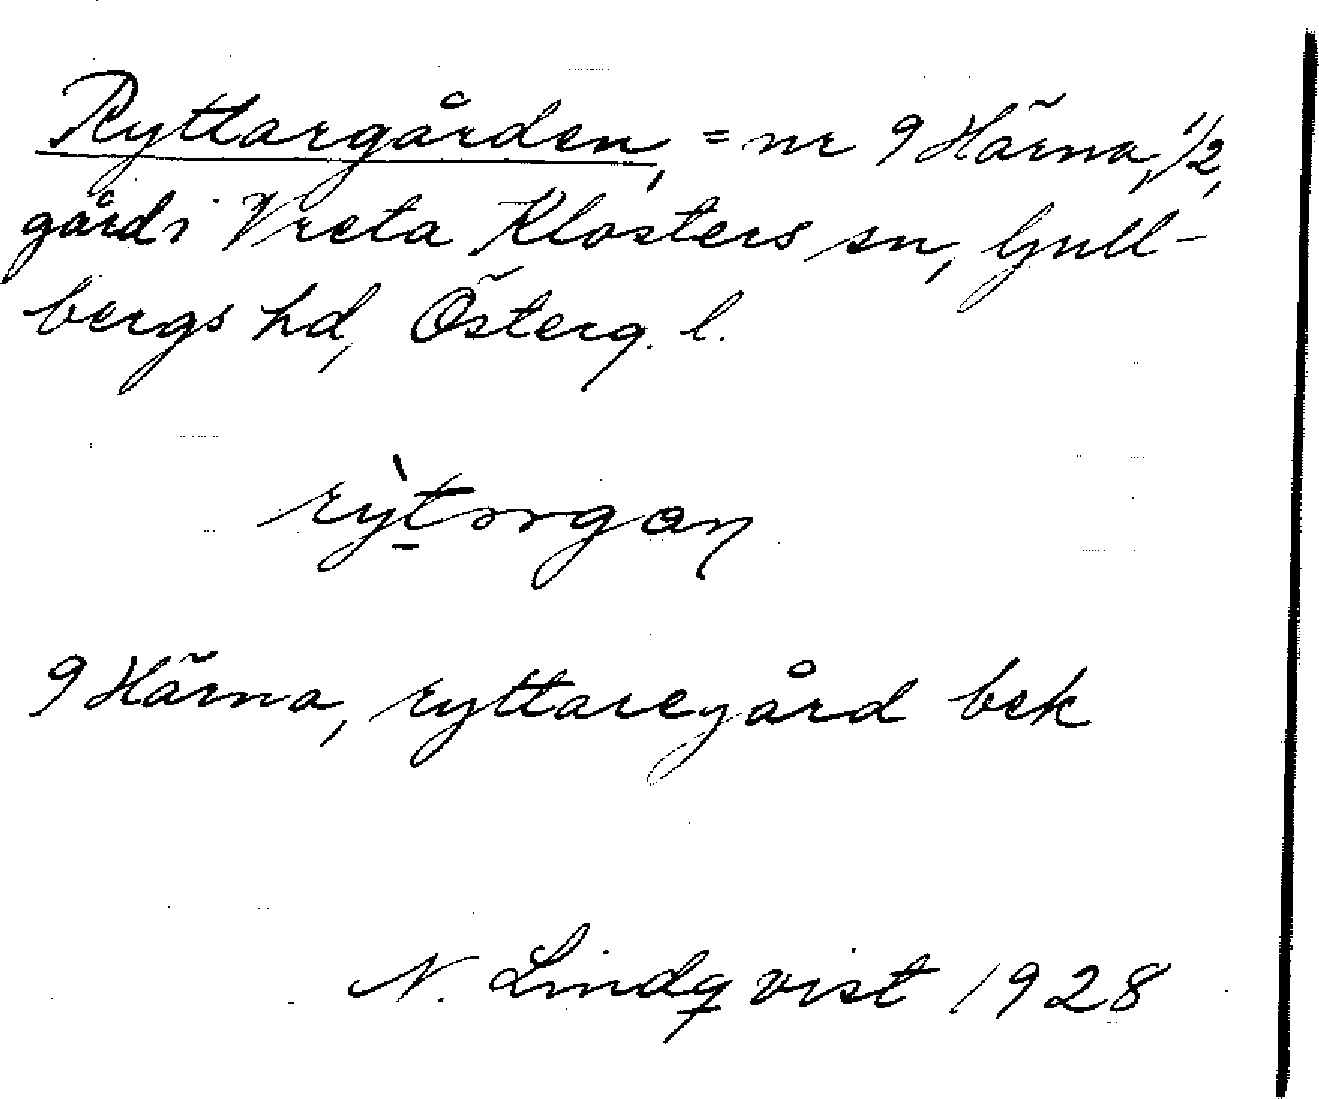 Ryttargården, = nr 9 Härna, 1/2,
gård i Vreta Klosters sn, Gull-
bergs hd, Österg. l.
9 Härna, ryttaregård bek
N. Lindqvist 1928